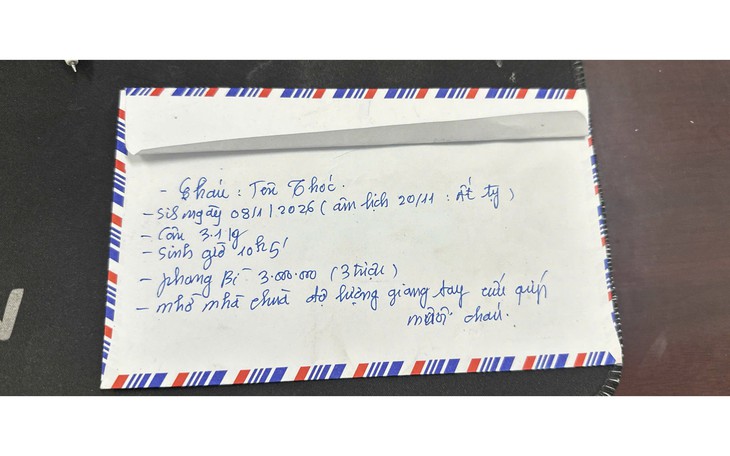 - Cháu : Tên Thóc.
- SiS ngày 08/1/2026 ( âm lịch 20/11 : Ất tỵ )
- Cân 3.1 kg
- Sinh giờ 10h5'
- phong Bì 3.000.000 (3 triệu)
- nhờ nhà chùa độ lượng giang tay cứu giúp
cháu.